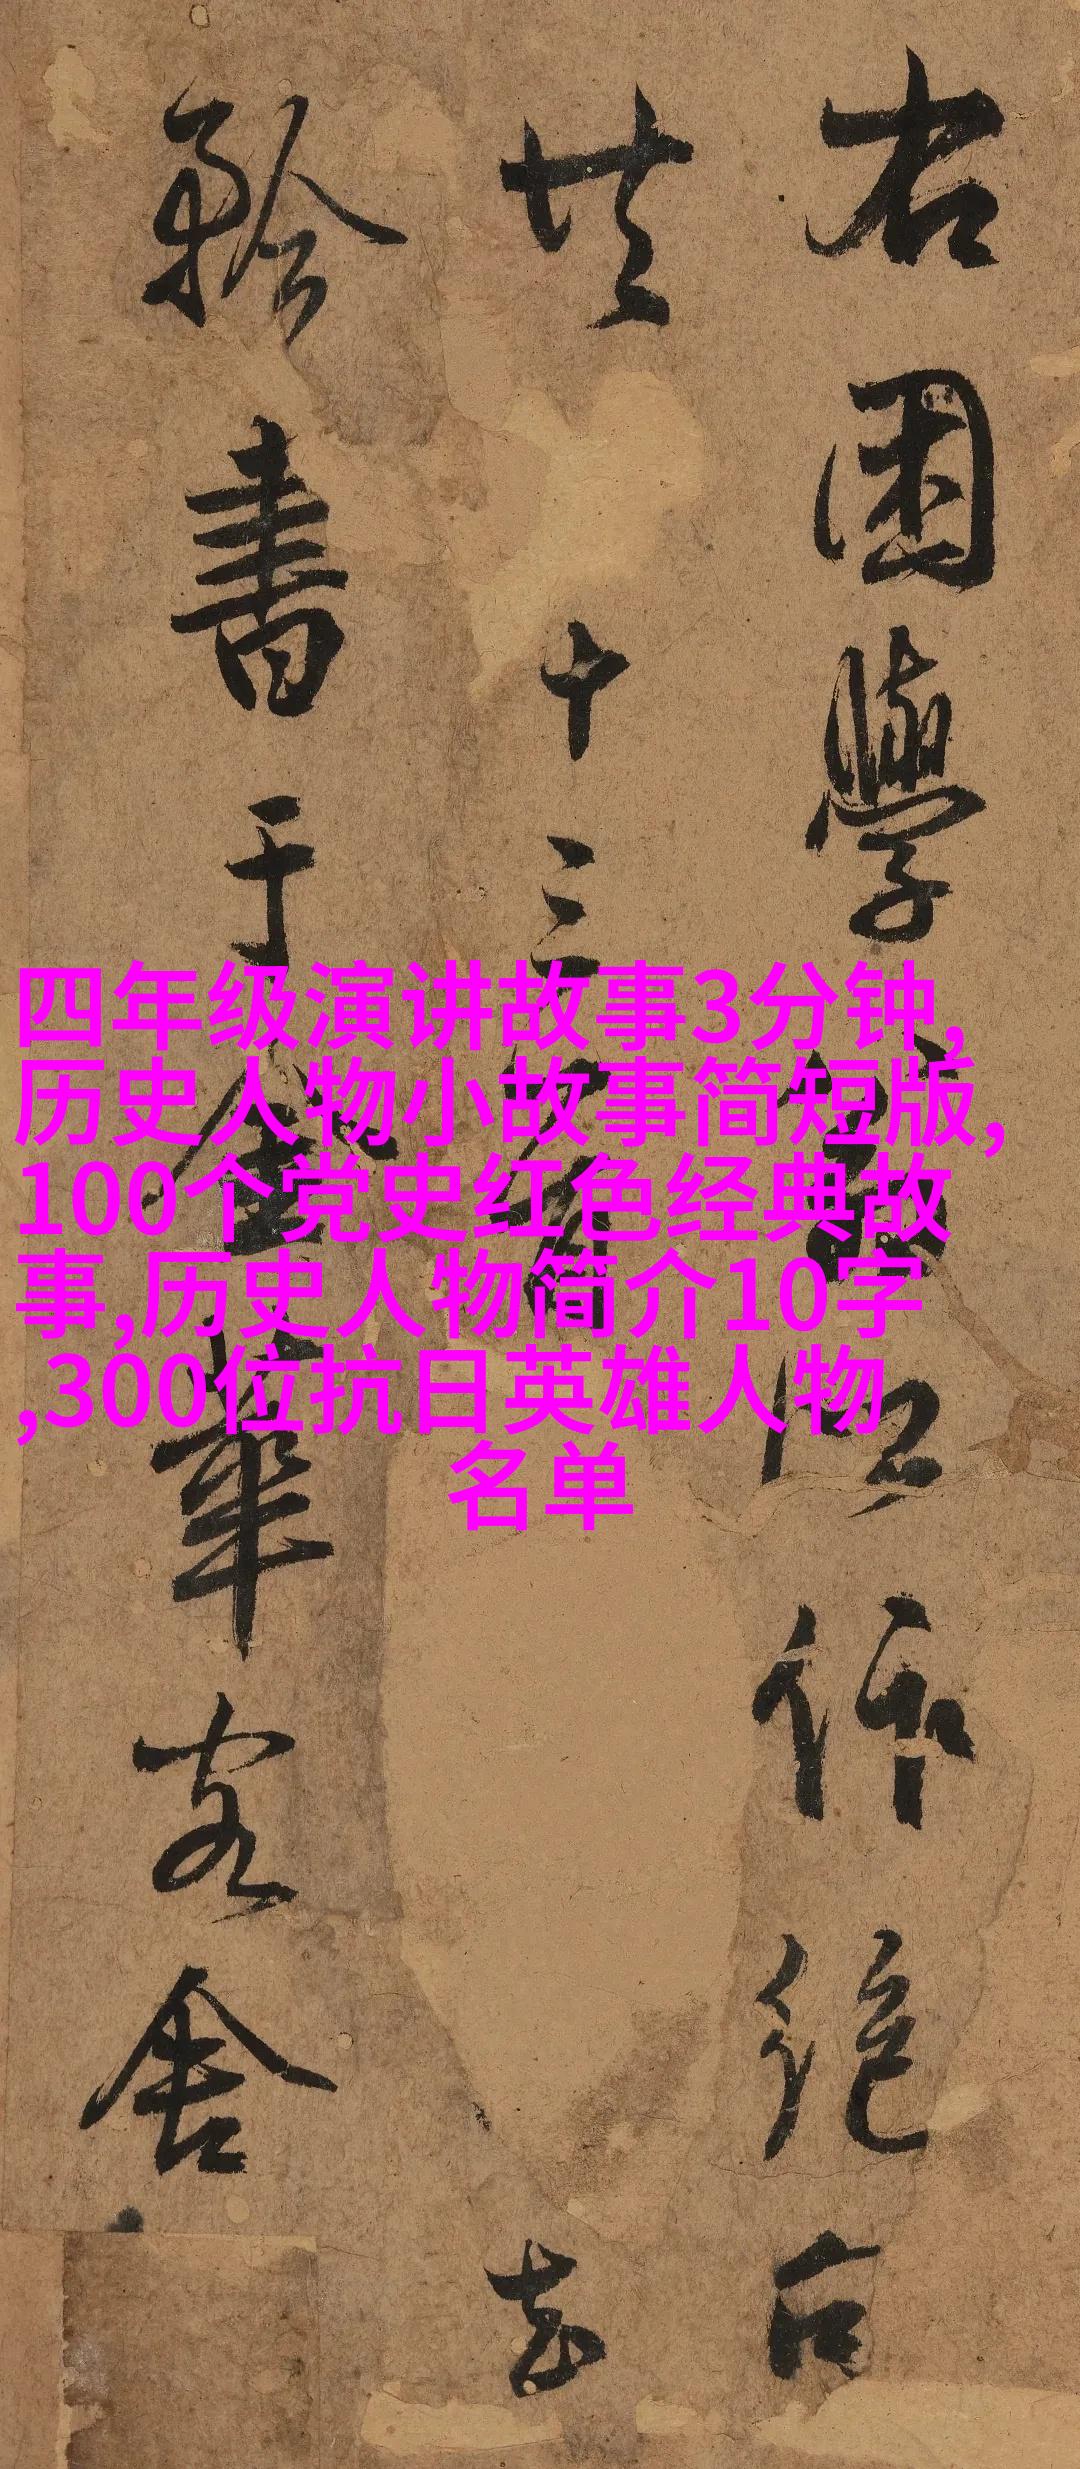 四年级演讲故事3分钟,
历史人物小故事简短版,
100个党史红色经典故
事,历史人物简介10字
,300位抗日英雄人物
名单
右困學
作絕句
廿 十三 至
書于 華客舍